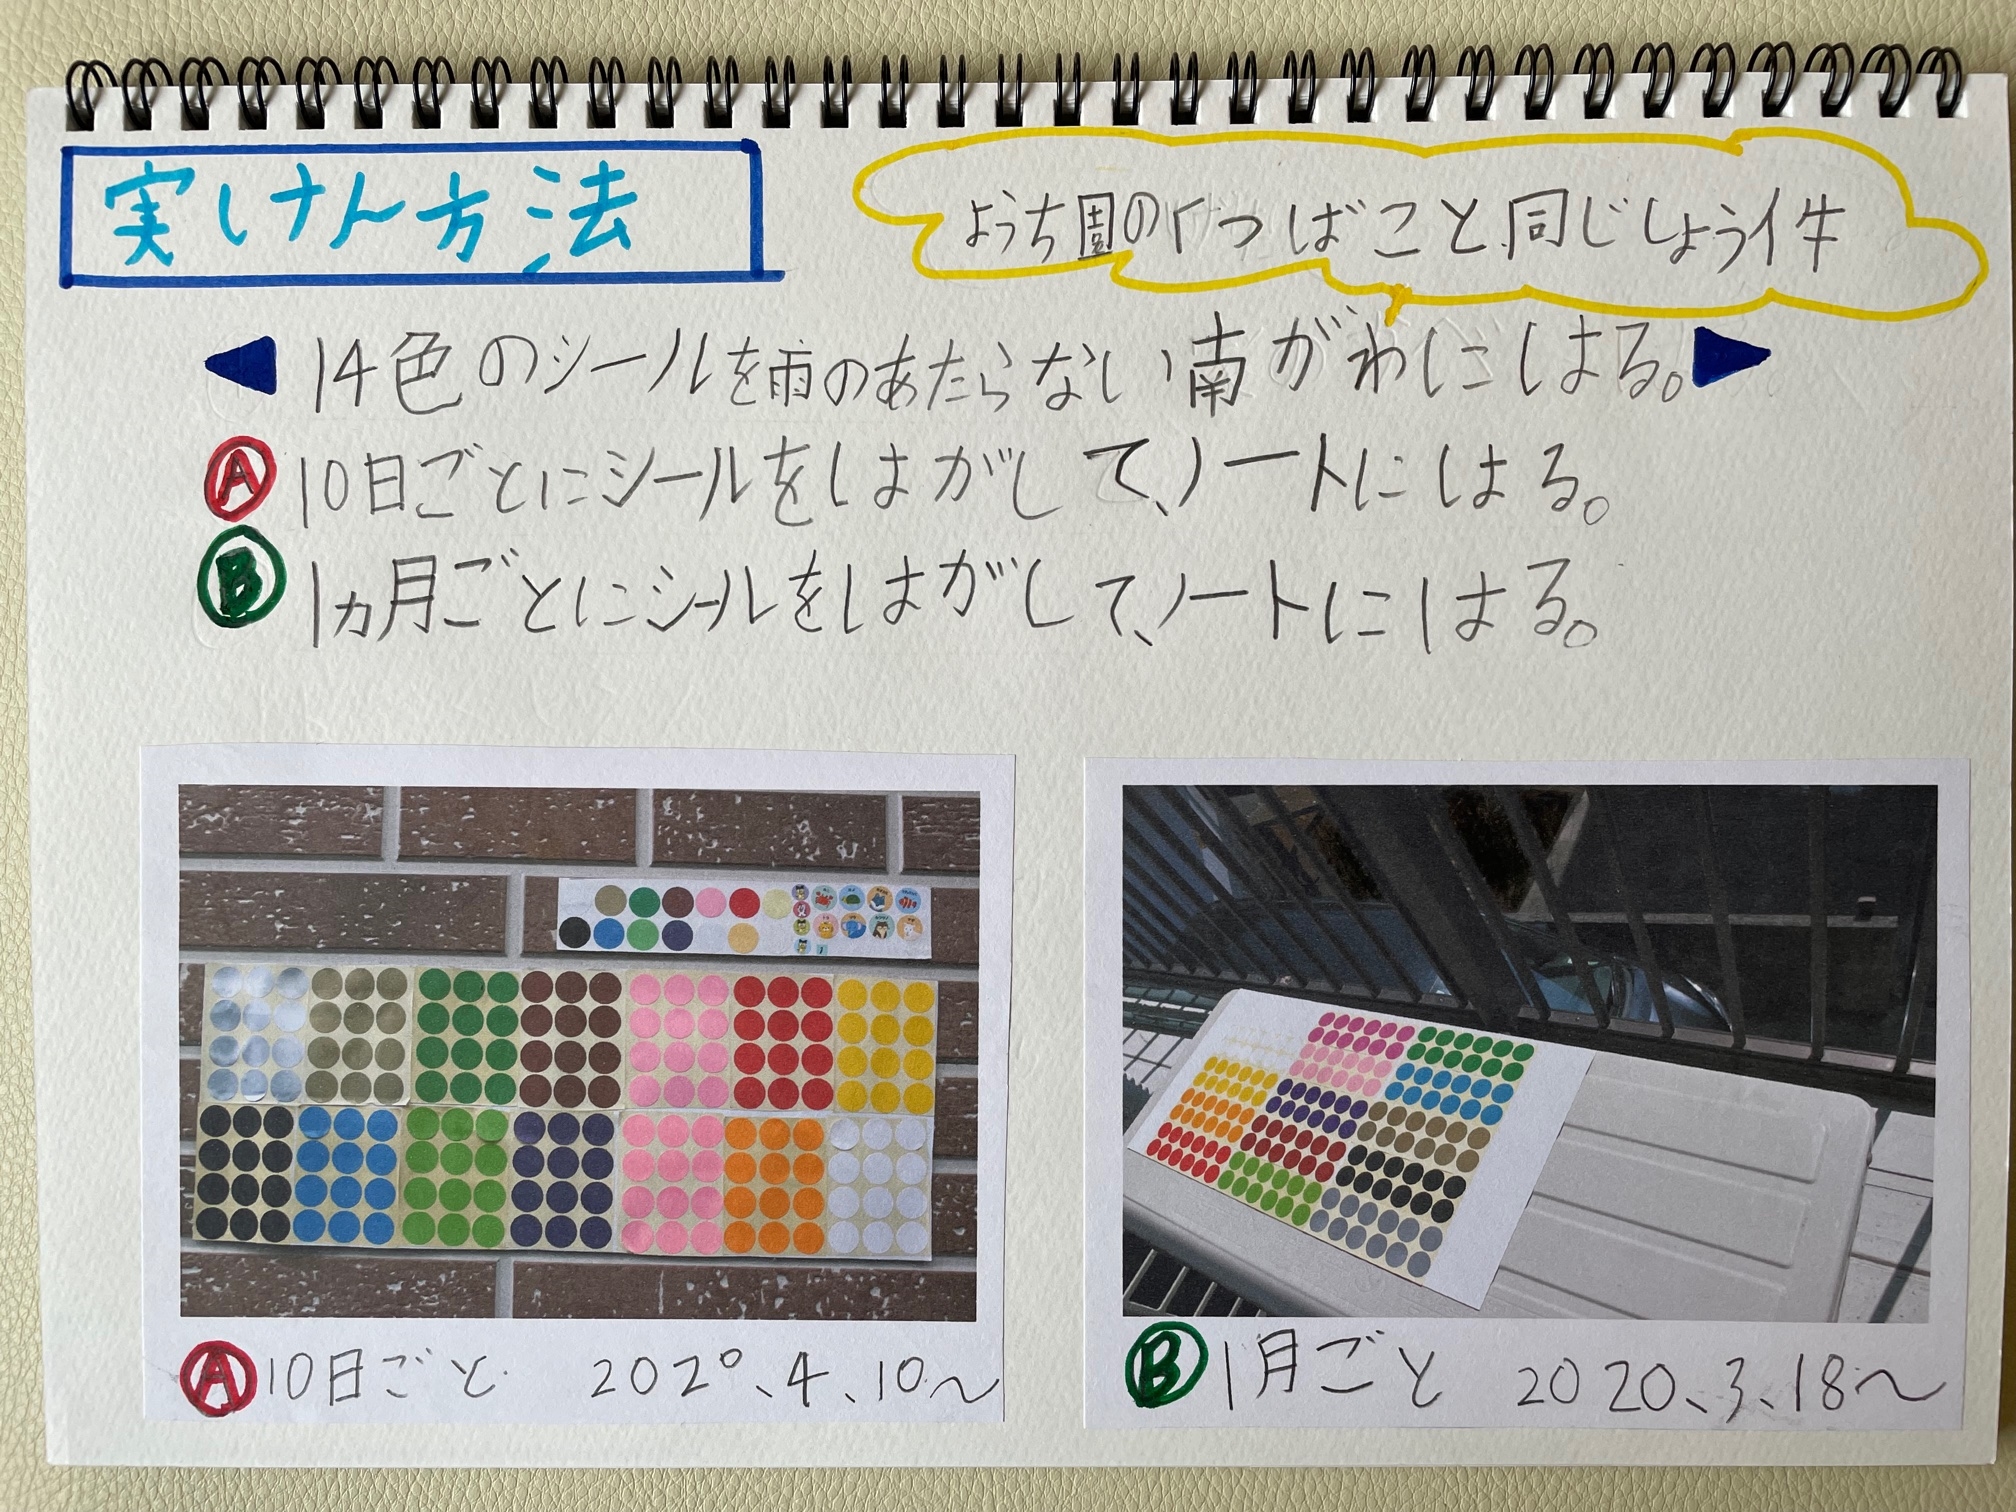 実けん方法
ようち園のくつばこと同じじょう件
14色のシールを雨のあたらない南がわにはる。
A 10日ごとにシールをはがして、ノートにはる。
B 1ヵ月ごとにシールをはがして、ノートにはる。
A 10日ごと 2020、4、10〜
B 1月ごと 2020、3、18〜